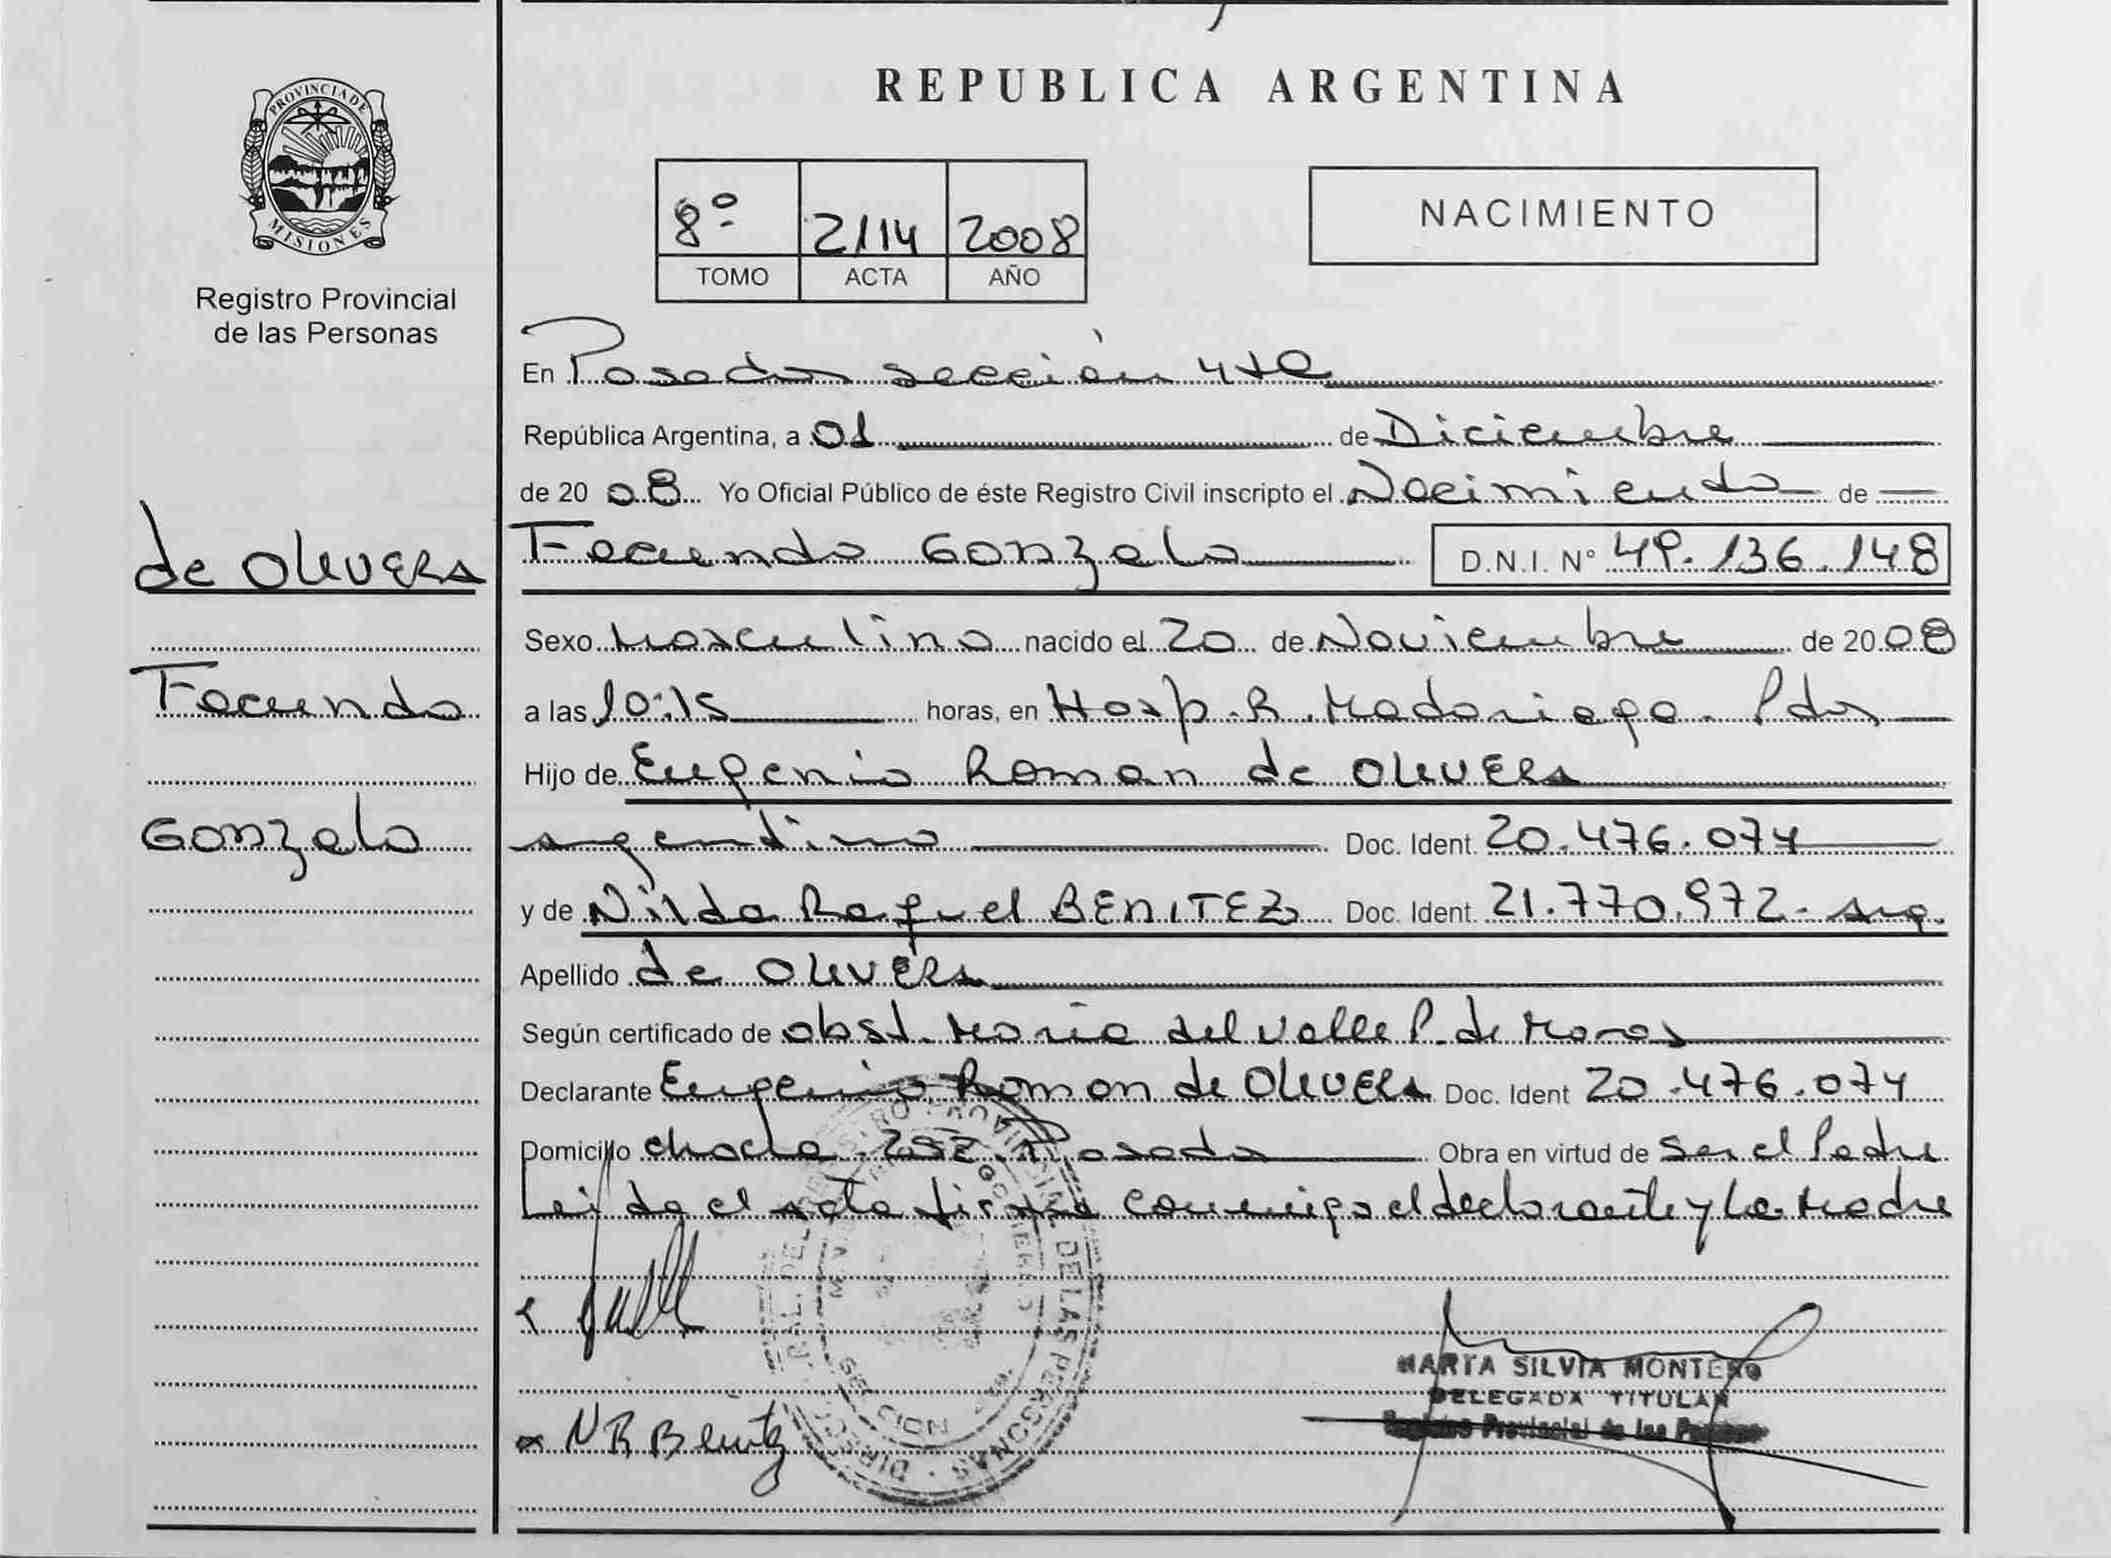 REPUBLICA ARGENTINA
PROVINCIA DE
MISIONES
Registro Provincial
de las Personas
8º 2114 2008
TOMO ACTA AÑO
NACIMIENTO
En Posadas sección 4ta
República Argentina, a 01 de Diciembre
de 20 08 Yo Oficial Público de éste Registro Civil inscripto el Nacimiento de
Facundo Gonzalo D.N.I. Nº 49.136.148
de OLIVERA
Facundo
Gonzalo
Sexo Masculino nacido el 20 de Noviembre de 2008
a las 10:15 horas, en Hosp. R. Madariaga. Pdas
Hijo de Eugenio Roman de OLIVERA
argentino Doc. Ident. 20.476.074
y de Nilda Raquel BENITEZ Doc. Ident. 21.770.972. arg.
Apellido de OLIVERA
Según certificado de obst. Maria del Valle P. de
Declarante Eugenio Roman de OLIVERA Doc. Ident 20.476.074
Domicilio chacra 252 Posadas Obra en virtud de Ser el Padre
Leida el acta firma conmigo el declarante y la Madre
N R Benitez
MARTA SILVIA MONTERO
DELEGADA TITULAR
Registro Provincial de las Personas
SECCION
DE LAS PERSONAS